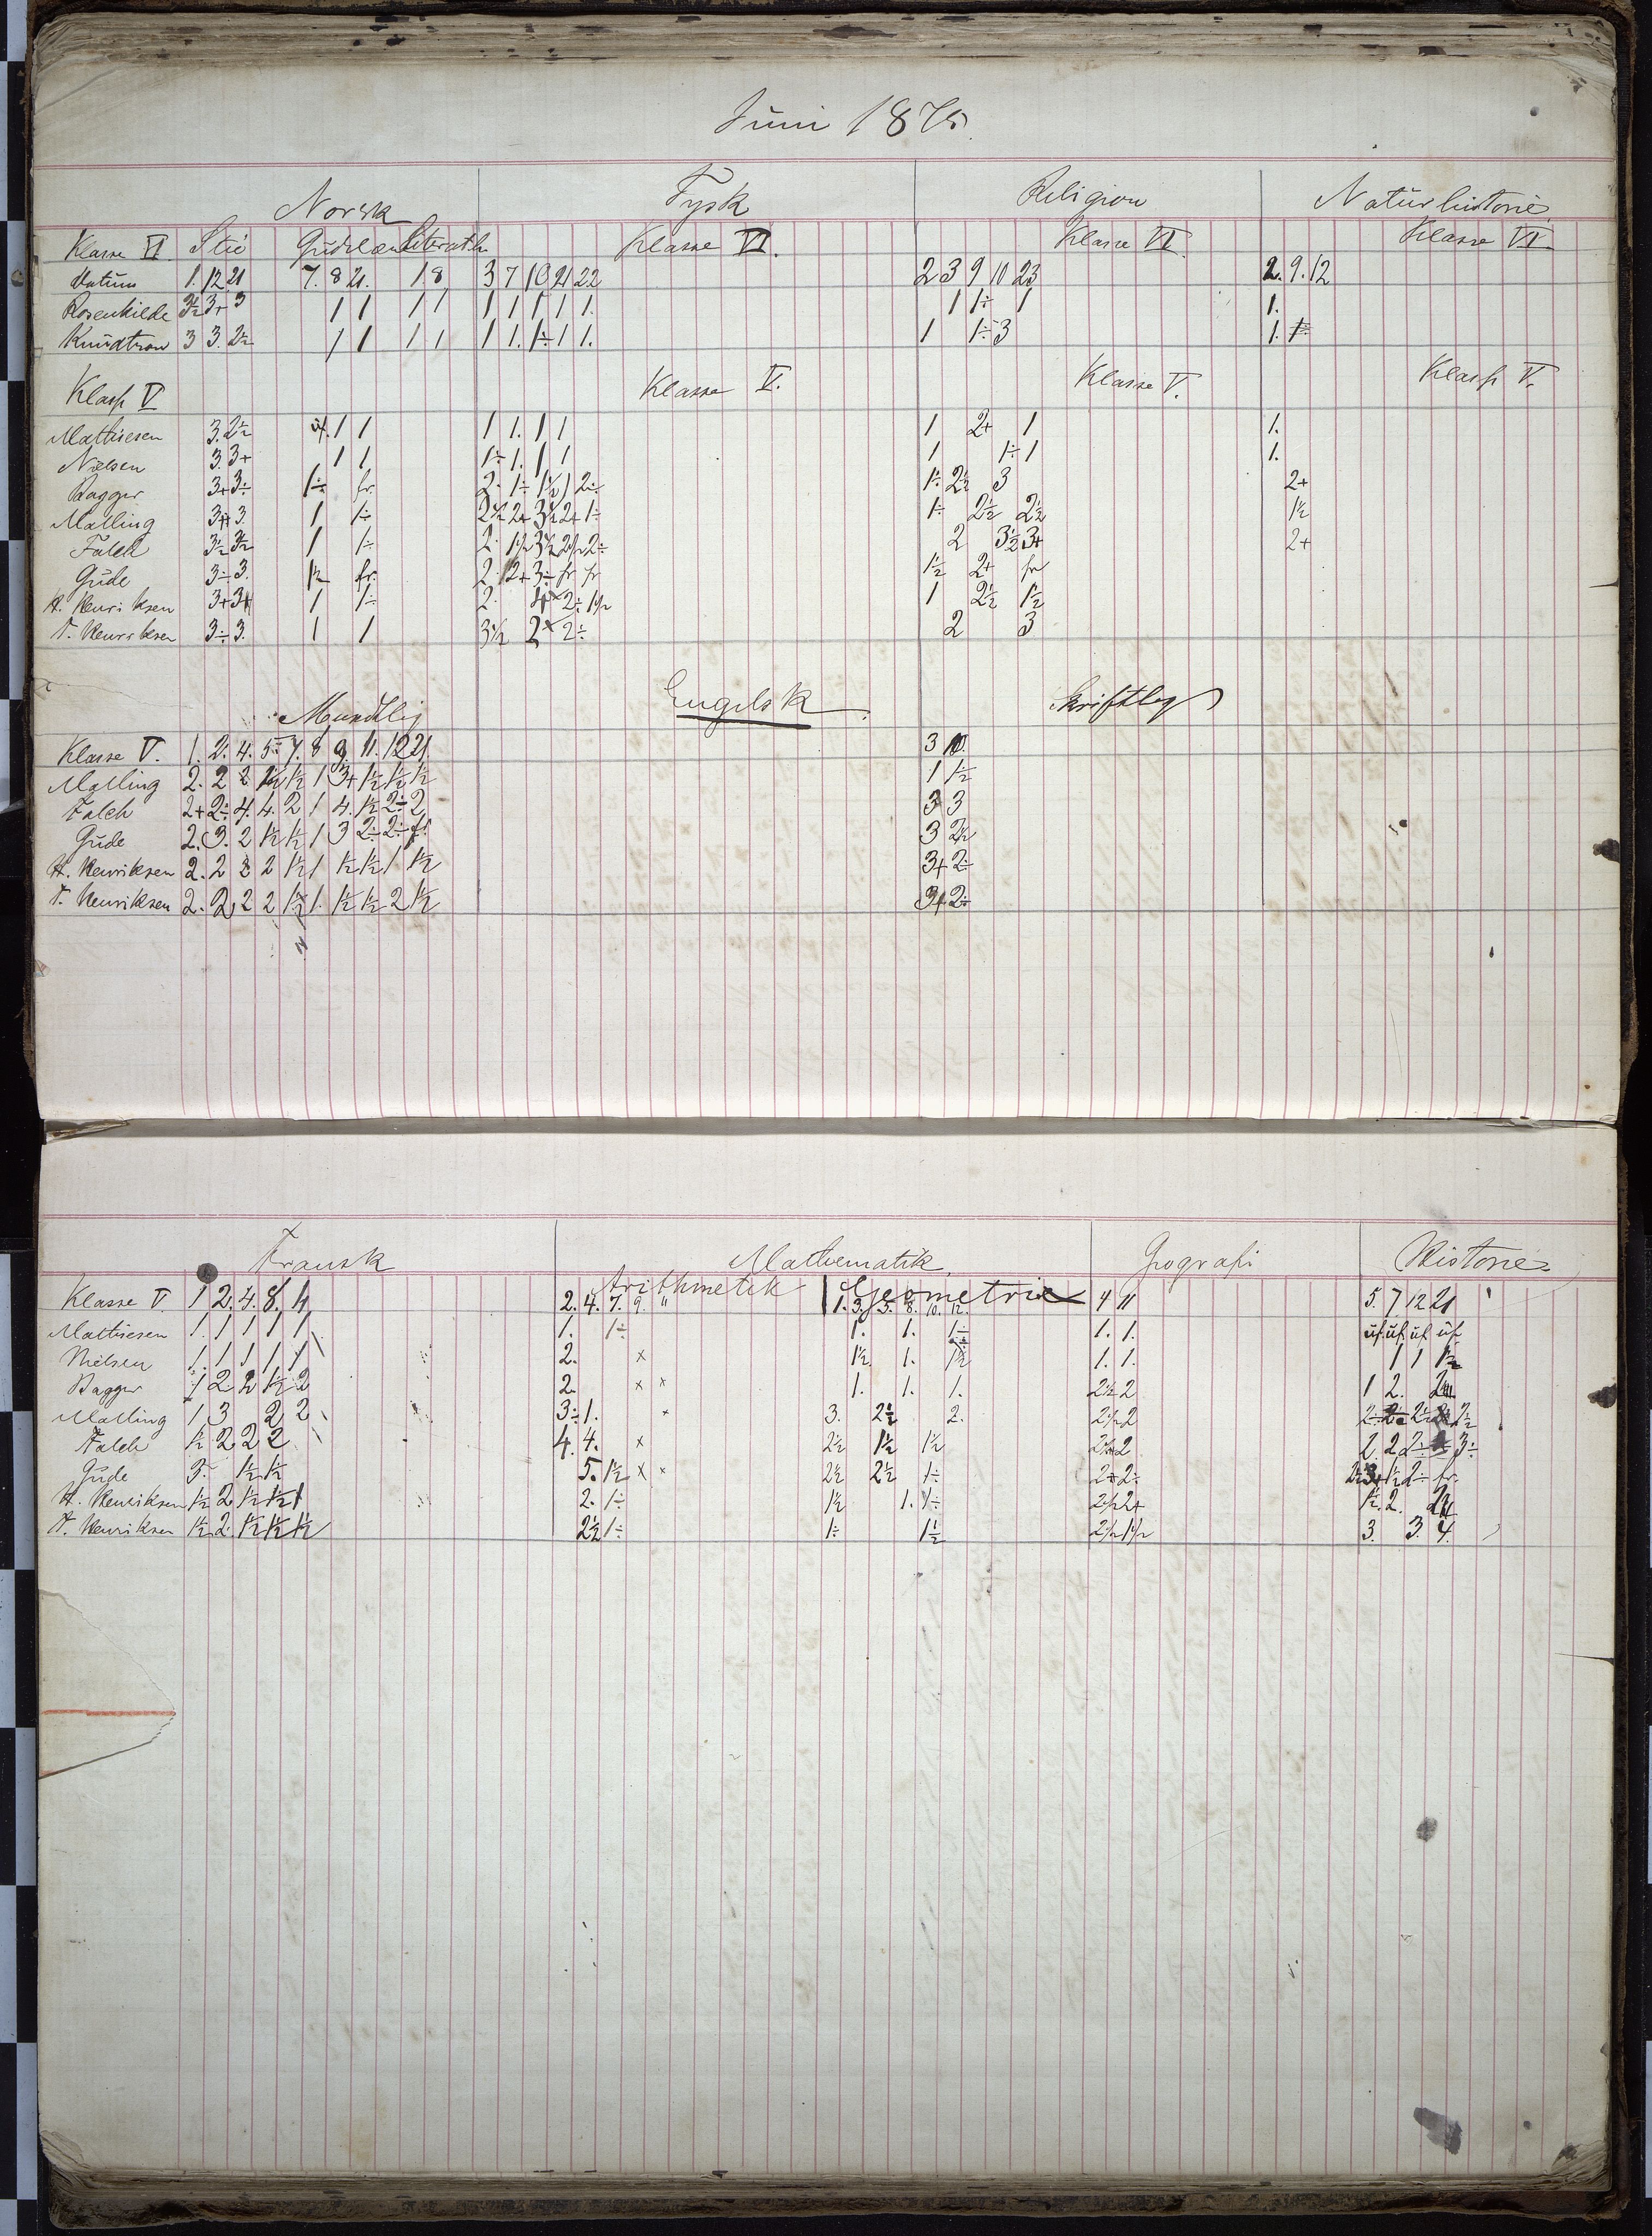 Juni 1875.
Norsk Tysk Religion Naturhistorie
Klasse VI Stiil Literath Klasse VI. Klasse VI. Klasse VI.
Datum 1. 12 21 7. 8 21. 1 8 3 7 10 21 22 2 3 9 10 23 2. 9. 12
Rosenkilde 3½ 3+ 3 1 1 1 1 1 1 1 1 1. 1 1÷ 1 1.
Knudtzon 3 3. 2½ 1 1 1 1 1 1. 1÷ 1 1. 1 1÷ 3 1.
Klasse V Klasse V. Klasse V. Klasse V.
Mathiesen 3. 2½ uf. 1 1 1 1. 1 1 1 2+ 1 1.
Nielsen 3. 3+ 1 1 1÷ 1. 1 1 1 1÷ 1 1.
Bagger 3+ 3÷ 1÷ fr. 2. 1÷ 1½ 1 2÷ 1÷ 2½ 3 2+
Malling 3+ 3. 1 1÷ 2½ 2+ 3½ 2+ 1÷ 1÷ 2½ 2½ 1½
Falch 3½ 3½ 1 1÷ 2. 1½ 3½ 2½ 2÷ 2 3½ 3+ 2+
Gude 3÷ 3. 1½ fr. 2. 2+ 3÷ fr fr 1½ 2+ fr
H. Henriksen 3+ 3+ 1 1÷ 2. 4× 2÷ 1½ 1 2½ 1½
T. Henriksen 3÷ 3. 1 1 3½ 2× 2÷ 2 3
Mundtlig Engelsk Skriftlig
Klasse V. 1. 2. 4. 5. 7. 8 9. 11. 12 21 3 10.
Malling 2. 2 2 1½ 1½ 1 3+ 1½ 1½ 1½ 1 1½
Falch 2+ 2÷ 4. 4. 2 1 4. 1½ 2÷ 2 3 3
Gude 2. 3. 2 1½ 1½ 1 3 2÷ 2÷ fr 3 2½
H. Henriksen 2. 2 2 2 1½ 1 1½ 1½ 1 1½ 3+ 2÷
T. Henriksen 2. 2 2 2 1½ 1. 1½ 1½ 2 1½ 3+ 2÷
Fransk Mathematik Geografi Historie
Arithmetik Geometrie
Klasse V. 1 2. 4. 8. 11 2. 4. 7. 9. " 1. 3. 5. 8. 10. 12. 4 11 5. 7 12 21
Mathiesen 1. 1 1 1 1 1. 1÷ 1. 1. 1÷ 1. 1. uf. uf. uf. uf.
Nielsen 1. 1 1 1 1 2. × 1½ 1. 1½ 1. 1. 1 1 1½
Bagger 1 2. 2 1½ 2 2. × × 1. 1. 1. 2½ 2 1 2.
Malling 1 3 2 2 3÷ 1. × 3. 2½ 2. 2½ 2
Falch 1½ 2 2 2 4. 4. × 2½ 1½ 1½ 2½ 2 2. 2 2÷ 3÷
Gude 3. 1½ 1½ 5. 1½ × × 2½ 2½ 1÷ 2÷ 2÷ 1½ 2÷ fr.
H. Henriksen 1½ 2 1½ 1½ 1 2. 1÷ 1½ 1. 1÷ 2½ 2+ 1½ 2.
T. Henriksen 1½ 2. 1½ 1½ 1½ 2½ 1÷ 1÷ 1½ 2½ 1½ 3. 3. 4.